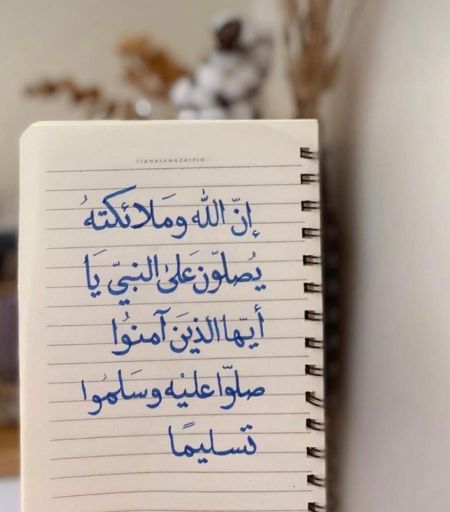 إنّ الله وملائكتهُ
يُصلّون عَلىٰ النبيّ يَا
أيّها الذينَ آمنُوا
صلّوا عليْه وسَلمُوا
تسليمًا